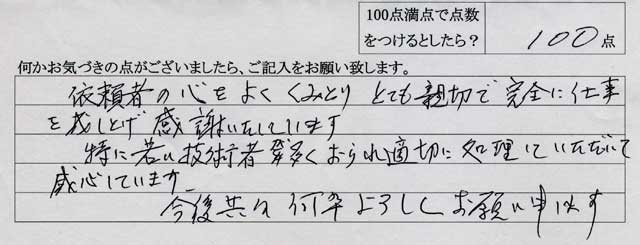 100点満点で点数
をつけるとしたら？
100点
何かお気づきの点がございましたら、ご記入をお願い致します。
依頼者の心をよくくみとりとても親切で完全に仕事
を成しとげ感謝いたしています
特に若い技術者が多くおられ適切に処理していただいて
感心しています。
今後共何卒よろしくお願い申します